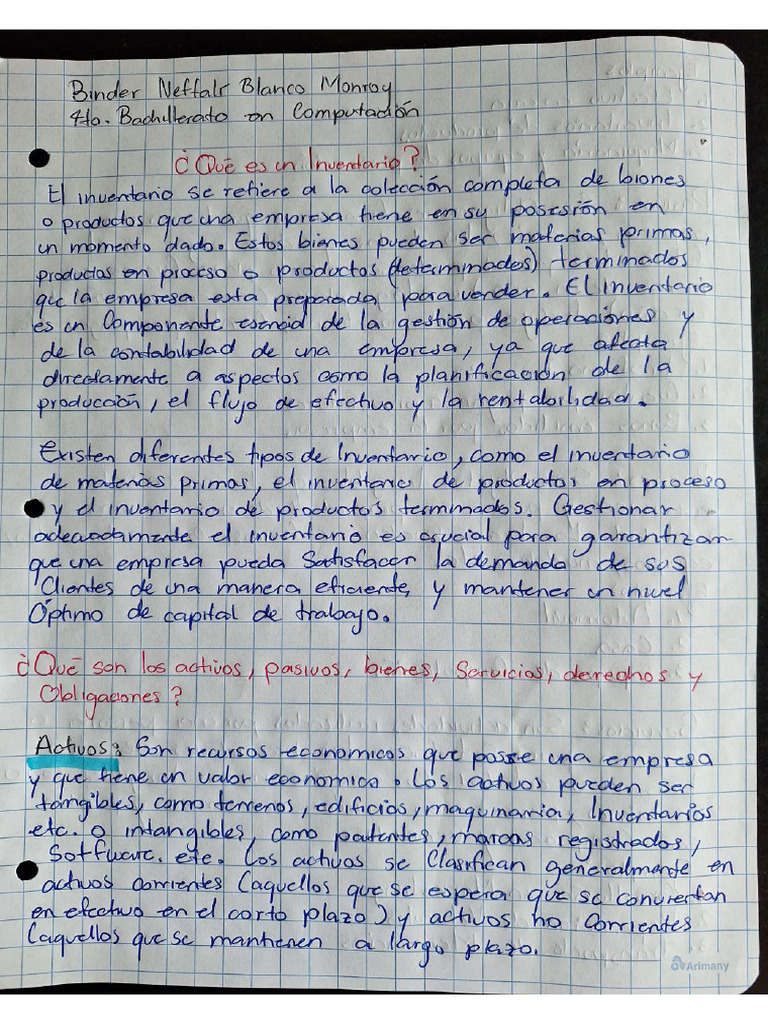 Binder Neftalí Blanco Monroy
4to. Bachillerato en Computación
¿Qué es un Inventario?
El inventario se refiere a la colección completa de bienes
o productos que una empresa tiene en su posesión en
un momento dado. Estos bienes pueden ser materias primas,
productos en proceso o productos (determinados) terminados
que la empresa esta preparada para vender. El inventario
es un Componente esencial de la gestión de operaciones y
de la contabilidad de una empresa, ya que afecta
directamente a aspectos como la planificación de la
producción, el flujo de efectivo y la rentabilidad.
Existen diferentes tipos de Inventario, como el inventario
de materias primas, el inventario de productos en proceso
y el inventario de productos terminados. Gestionar
adecuadamente el inventario es crucial para garantizar
que una empresa pueda Satisfacer la demanda de sus
Clientes de una manera eficiente, y mantener un nivel
Óptimo de capital de trabajo.
¿Qué son los activos, pasivos, bienes, Servicios, derechos y
Obligaciones?
Activos: Son recursos economicos que posee una empresa
y que tiene un valor economico. Los activos pueden ser
tangibles, como terrenos, edificios, maquinaria, Inventarios
etc. o intangibles, como patentes, marcas registrados,
Software. etc. Los activos se Clasifican generalmente en
activos corrientes (aquellos que se espera que se conviertan
en efectivo en el corto plazo) y activos no Corrientes
(aquellos que se mantienen a largo plazo.
Arimany